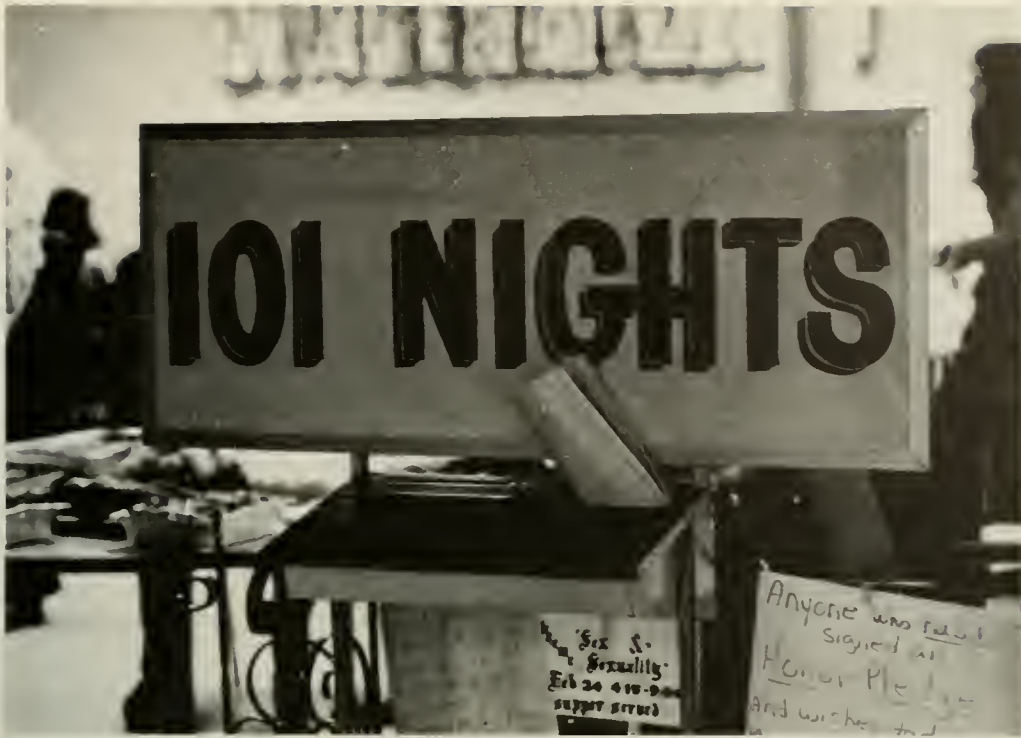 101 NIGHTS
Sex &
Sexuality
Feb 24 4
supper served
Anyone who
signed
Honor Ple
And wishes